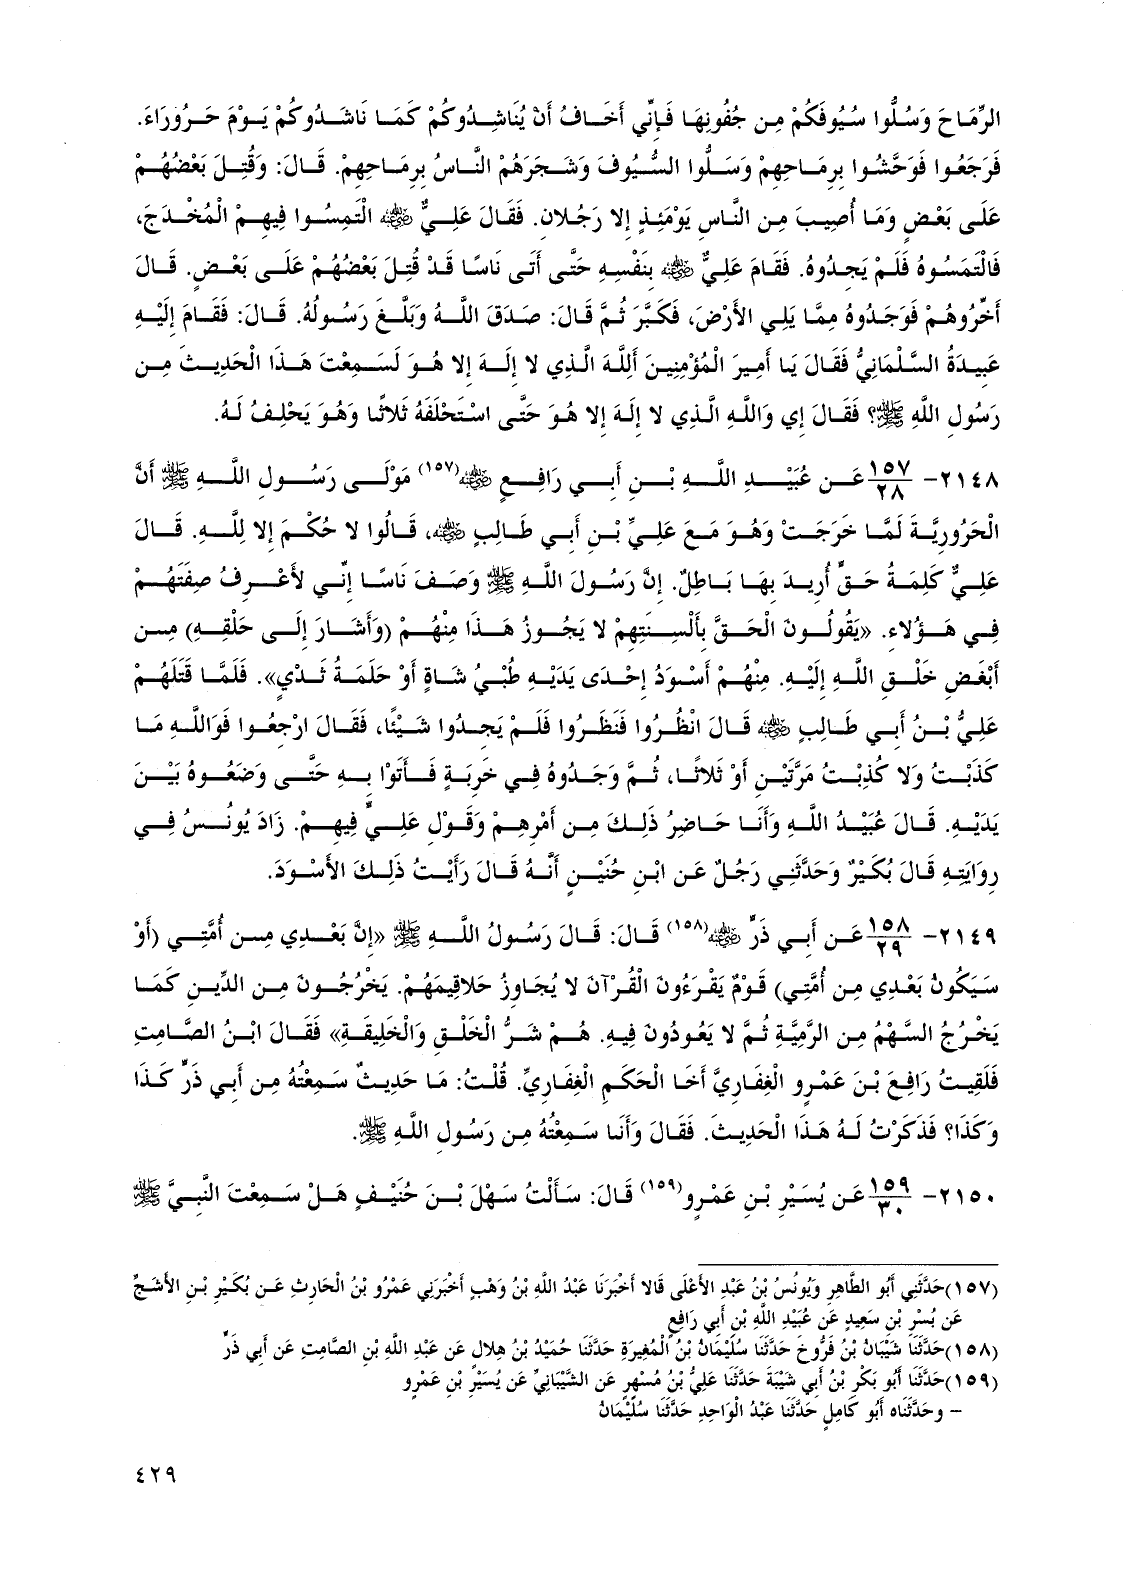 الرِّمَاحَ وَسُلُّوا سُيُوفَكُمْ مِن جُفُونِهَا فَإِنِّي أَخَافُ أَنْ يُنَاشِدُوكُمْ كَمَا نَاشَدُوكُمْ يَوْمَ حَرُورَاءَ.
فَرَجَعُوا فَوَحَّشُوا بِرِمَاحِهِمْ وَسَلُّوا السُّيُوفَ وَشَجَرَهُمْ النَّاسُ بِرِمَاحِهِمْ. قَالَ: وَقُتِلَ بَعْضُهُمْ
عَلَى بَعْضٍ وَمَا أُصِيبَ مِن النَّاسِ يَوْمَئِذٍ إِلا رَجُلانِ. فَقَالَ عَلِيٌّ ﵁ الْتَمِسُوا فِيهِمْ الْمُخْدَجَ،
فَالْتَمَسُوهُ فَلَمْ يَجِدُوهُ. فَقَامَ عَلِيٌّ ﵁ بِنَفْسِهِ حَتَّى أَتَى نَاسًا قَدْ قُتِلَ بَعْضُهُمْ عَلَى بَعْضٍ. قَالَ
أَخِّرُوهُمْ فَوَجَدُوهُ مِمَّا يَلِي الأَرْضَ، فَكَبَّرَ ثُمَّ قَالَ: صَدَقَ اللَّهُ وَبَلَّغَ رَسُولُهُ. قَالَ: فَقَامَ إِلَيْهِ
عَبِيدَةُ السَّلْمَانِيُّ فَقَالَ يَا أَمِيرَ الْمُؤْمِنِينَ أَللَّهَ الَّذِي لا إِلَهَ إِلا هُوَ لَسَمِعْتَ هَذَا الْحَدِيثَ مِن
رَسُولِ اللَّهِ ﷺ؟ فَقَالَ إِي وَاللَّهِ الَّذِي لا إِلَهَ إِلا هُوَ حَتَّى اسْتَحْلَفَهُ ثَلاثًا وَهُوَ يَحْلِفُ لَهُ.
٢١٤٨- ١٥٧/٢٨ عَن عُبَيْدِ اللَّهِ بْنِ أَبِي رَافِعٍ ﵁(١٥٧) مَوْلَى رَسُولِ اللَّهِ ﷺ أَنَّ
الْحَرُورِيَّةَ لَمَّا خَرَجَتْ وَهُوَ مَعَ عَلِيِّ بْنِ أَبِي طَالِبٍ ﵁، قَالُوا لا حُكْمَ إِلا لِلَّهِ. قَالَ
عَلِيٌّ كَلِمَةُ حَقٍّ أُرِيدَ بِهَا بَاطِلٌ. إِنَّ رَسُولَ اللَّهِ ﷺ وَصَفَ نَاسًا إِنِّي لأَعْرِفُ صِفَتَهُمْ
فِي هَؤُلاءِ. «يَقُولُونَ الْحَقَّ بِأَلْسِنَتِهِمْ لا يَجُوزُ هَذَا مِنْهُمْ (وَأَشَارَ إِلَى حَلْقِهِ) مِن
أَبْغَضِ خَلْقِ اللَّهِ إِلَيْهِ. مِنْهُمْ أَسْوَدُ إِحْدَى يَدَيْهِ طُبْيُ شَاةٍ أَوْ حَلَمَةُ ثَدْيٍ». فَلَمَّا قَتَلَهُمْ
عَلِيُّ بْنُ أَبِي طَالِبٍ ﵁ قَالَ انْظُرُوا فَنَظَرُوا فَلَمْ يَجِدُوا شَيْئًا، فَقَالَ ارْجِعُوا فَوَاللَّهِ مَا
كَذَبْتُ وَلا كُذِبْتُ مَرَّتَيْنِ أَوْ ثَلاثًا، ثُمَّ وَجَدُوهُ فِي خَرِبَةٍ فَأَتَوْا بِهِ حَتَّى وَضَعُوهُ بَيْنَ
يَدَيْهِ. قَالَ عُبَيْدُ اللَّهِ وَأَنَا حَاضِرُ ذَلِكَ مِن أَمْرِهِمْ وَقَوْلِ عَلِيٍّ فِيهِمْ. زَادَ يُونُسُ فِي
رِوَايَتِهِ قَالَ بُكَيْرٌ وَحَدَّثَنِي رَجُلٌ عَن ابْنِ حُنَيْنٍ أَنَّهُ قَالَ رَأَيْتُ ذَلِكَ الأَسْوَدَ.
٢١٤٩- ١٥٨/٢٩ عَن أَبِي ذَرٍّ ﵁(١٥٨) قَالَ: قَالَ رَسُولُ اللَّهِ ﷺ «إِنَّ بَعْدِي مِن أُمَّتِي (أَوْ
سَيَكُونُ بَعْدِي مِن أُمَّتِي) قَوْمٌ يَقْرَءُونَ الْقُرْآنَ لا يُجَاوِزُ حَلاقِيمَهُمْ. يَخْرُجُونَ مِن الدِّينِ كَمَا
يَخْرُجُ السَّهْمُ مِن الرَّمِيَّةِ ثُمَّ لا يَعُودُونَ فِيهِ. هُمْ شَرُّ الْخَلْقِ وَالْخَلِيقَةِ» فَقَالَ ابْنُ الصَّامِتِ
فَلَقِيتُ رَافِعَ بْنَ عَمْرٍو الْغِفَارِيَّ أَخَا الْحَكَمِ الْغِفَارِيِّ. قُلْتُ: مَا حَدِيثٌ سَمِعْتُهُ مِن أَبِي ذَرٍّ كَذَا
وَكَذَا؟ فَذَكَرْتُ لَهُ هَذَا الْحَدِيثَ. فَقَالَ وَأَنَا سَمِعْتُهُ مِن رَسُولِ اللَّهِ ﷺ.
٢١٥٠- ١٥٩/٣٠ عَن يُسَيْرِ بْنِ عَمْرٍو(١٥٩) قَالَ: سَأَلْتُ سَهْلَ بْنَ حُنَيْفٍ هَلْ سَمِعْتَ النَّبِيَّ ﷺ
(١٥٧)حَدَّثَنِي أَبُو الطَّاهِرِ وَيُونُسُ بْنُ عَبْدِ الأَعْلَى قَالا أَخْبَرَنَا عَبْدُ اللَّهِ بْنُ وَهْبٍ أَخْبَرَنِي عَمْرُو بْنُ الْحَارِثِ عَن بُكَيْرِ بْنِ الأَشَجِّ
عَن بُسْرِ بْنِ سَعِيدٍ عَن عُبَيْدِ اللَّهِ بْنِ أَبِي رَافِعٍ
(١٥٨)حَدَّثَنَا شَيْبَانُ بْنُ فَرُّوخَ حَدَّثَنَا سُلَيْمَانُ بْنُ الْمُغِيرَةِ حَدَّثَنَا حُمَيْدُ بْنُ هِلالٍ عَن عَبْدِ اللَّهِ بْنِ الصَّامِتِ عَن أَبِي ذَرٍّ
(١٥٩)حَدَّثَنَا أَبُو بَكْرِ بْنُ أَبِي شَيْبَةَ حَدَّثَنَا عَلِيُّ بْنُ مُسْهِرٍ عَن الشَّيْبَانِيِّ عَن يُسَيْرِ بْنِ عَمْرٍو
– وحَدَّثَنَاه أَبُو كَامِلٍ حَدَّثَنَا عَبْدُ الْوَاحِدِ حَدَّثَنَا سُلَيْمَانُ
٤٢٩